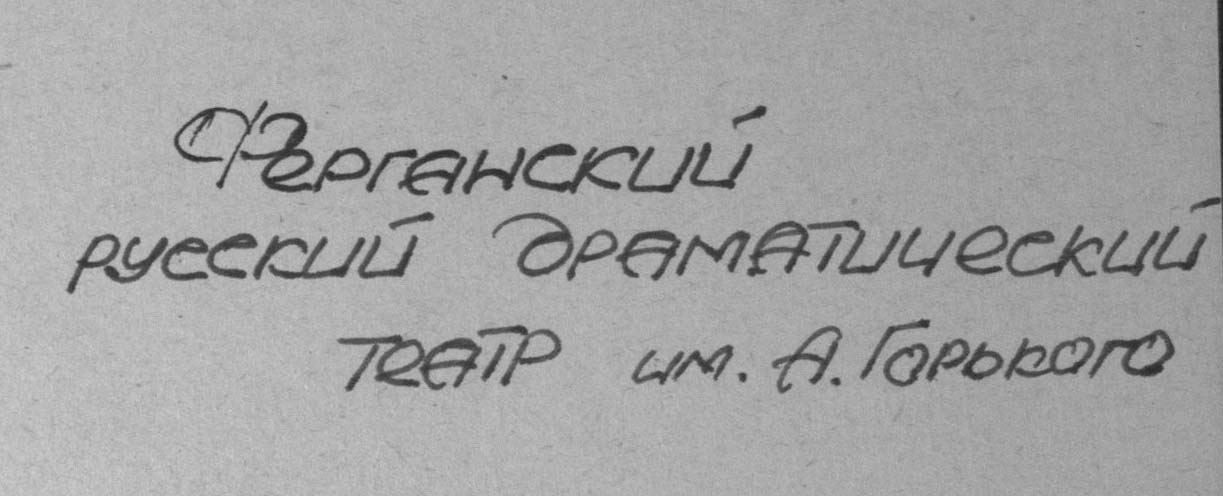 Ферганский
русский драматический
театр им. А. Горького